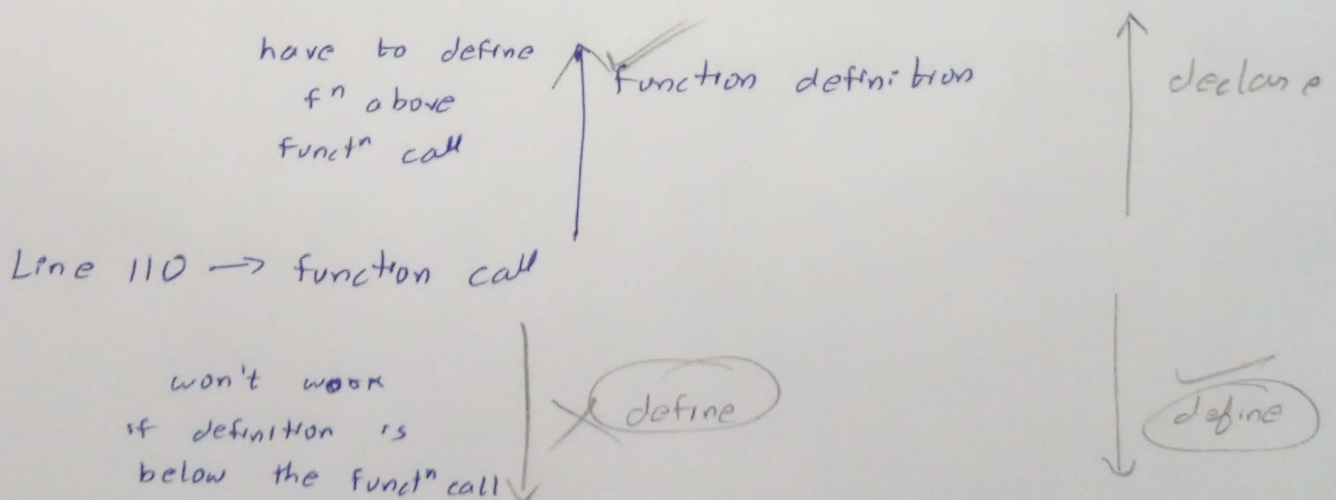 have to define
fⁿ above
functⁿ call
function definition
declare
Line 110 → function call
won't work
if definition is
below the functⁿ call
define
define